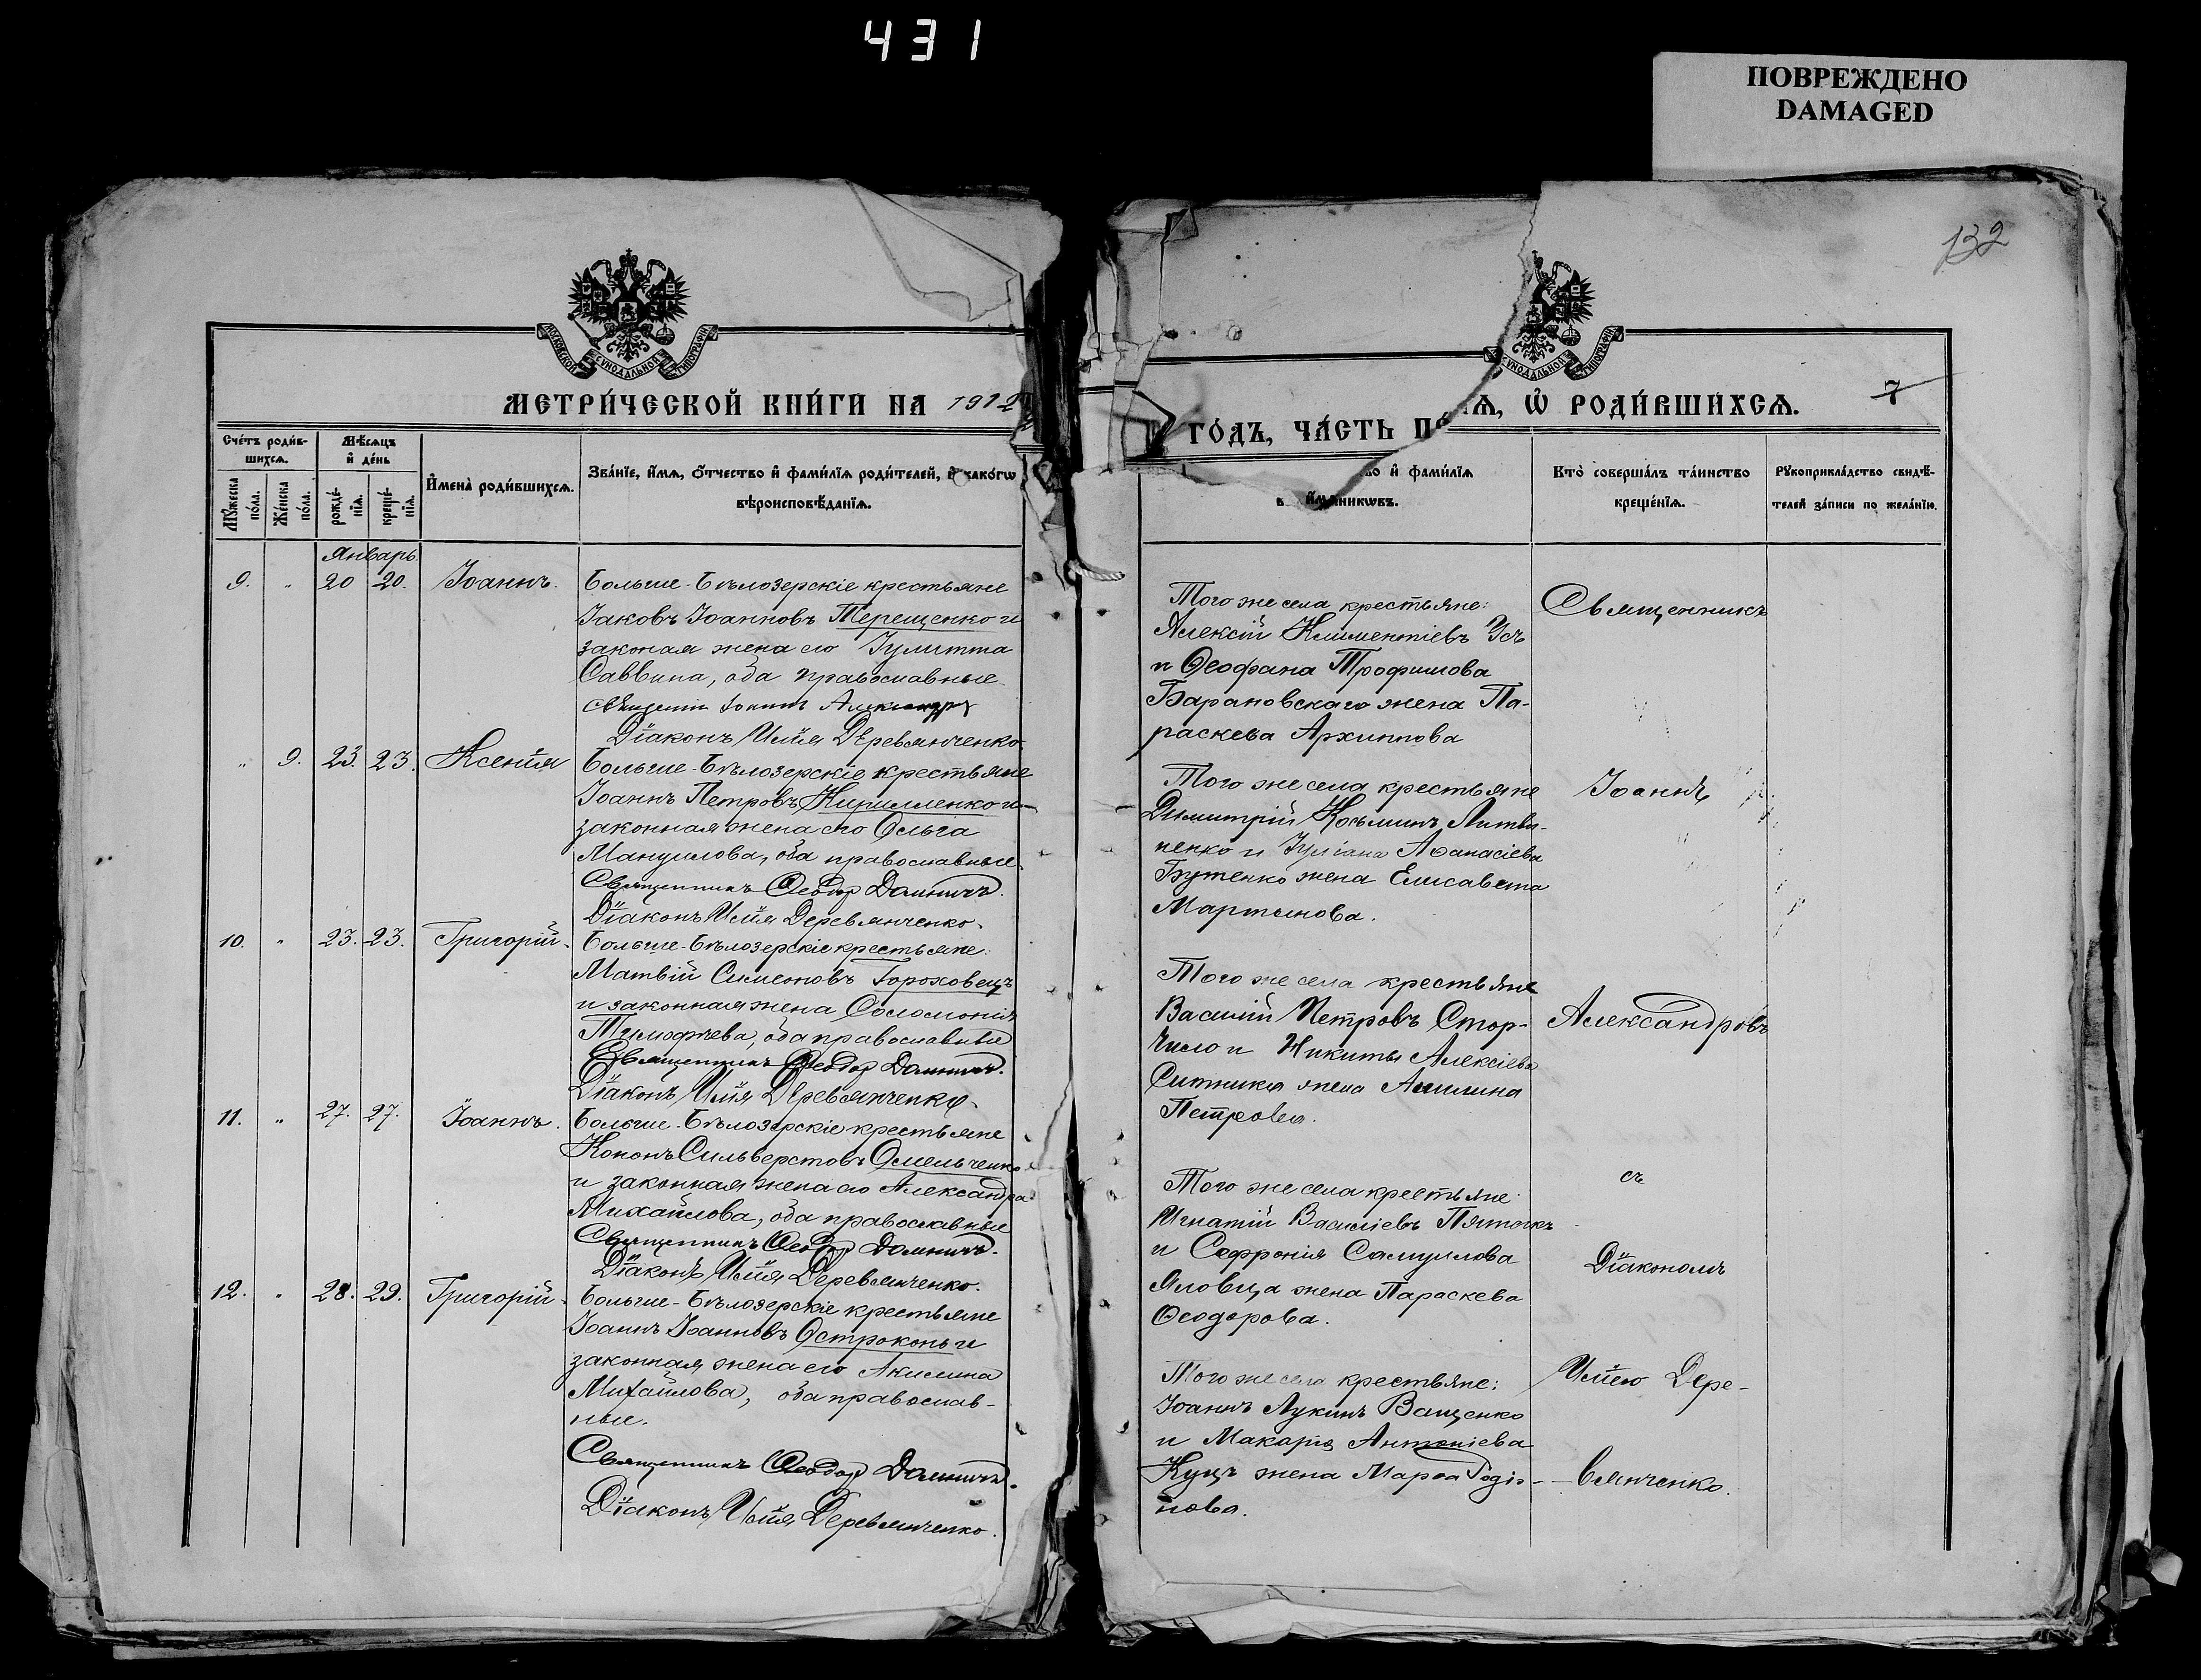 431
ПОВРЕЖДЕНО
DAMAGED
132
МОСКОВСКОЙ СѴНОДАЛЬНОЙ ТИПОГРАФІИ
СѴНОДАЛЬНОЙ ТИПОГРАФІИ
МЕТРИ́ЧЕСКОЙ КНИ́ГИ НА 1912
ГО́ДЪ, ЧА́СТЬ ПЕ
АЯ, Ѡ҆ РОДИ́ВШИХСЯ.
7
Сче́тъ роди́в-
шихся.
Мѣ́сяцъ
и҆ де́нь
Му́жеска
по́ла.
Же́нска
по́ла.
рожде́-
нїя.
креще́-
нїя.
И҆мена̀ роди́вшихся.
Зва́нїе, и҆́мя, ѻ҆́тчество и҆ фами́лїя роди́телей, и҆ какогѡ
вѣроисповѣданїя.
во и҆ фами́лїя
Кто̀ соверша́лъ та́инство
креще́нїя.
Рукоприкла́дство свидѣ́-
телей за́писи по жела́нїю.
Январь
9. " 20 20. Іоаннъ.
Больше-Бѣлозерскіе крестьяне
Іаковъ Іоанновъ Терещенко и
законая жена его Іулитта
Саввина, оба православные
Діаконъ Илія Деревянченко.
Того же села крестьяне:
Алексій Климентіевъ Усъ
и Ѳеофана Трофимова
Барановскаго жена Па-
раскева Архиппова
Священникъ
" 9. 23. 23. Ксенія
Больше-Бѣлозерскіе крестьяне
Іоаннъ Петровъ Кириленко и
законная жена его Ольга
Мануилова, оба православные
Священникъ Ѳеодор Домнич.
Діаконъ Илія Деревянченко.
Того же села крестьяне
Димитрій Косьминъ Литви-
ненко и Іуліана Аѳанасіева
Бутенко жена Елисавета
Мартинова.
Іоаннъ
10. " 23. 23. Григорій.
Больше-Бѣлозерскіе крестьяне:
Матвій Симеоновъ Гороховецъ
и законная жена Соломонія
Тимофеева, оба православные
Священникъ Ѳеодор Домнич.
Діаконъ Илія Деревянченко.
Того же села крестьяне
Василій Петровъ Стор-
чило и Никиты Алексіева
Ситника жена Акилина
Петрова.
Александровъ
11. " 27. 27. Іоаннъ.
Больше-Бѣлозерскіе крестьяне
Кононъ Сильверстовъ Омельченко
и законная жена его Александра
Михайлова, оба православные
Священникъ Ѳеодор Домнич.
Діаконъ Илія Деревянченко.
съ
Того же села крестьяне
Игнатій Василіевъ
и Софронія Самуилова
Яловца жена Параскева
Ѳеодорова.
Діакономъ
12. " 28. 29. Григорій.
Больше-Бѣлозерскіе крестьяне
Іоаннъ Іоанновъ Остроконь и
законная жена его Акилина
Михайлова, оба православ-
ные.
Священникъ Ѳеодор Домнич.
Діаконъ Илія Деревянченко.
Того же села крестьяне:
Іоаннъ Лукинъ Ващенко
и Макарія Антоніева
Куцъ жена Марѳа Родіо-
нова.
Иліею Дере-
вянченко.